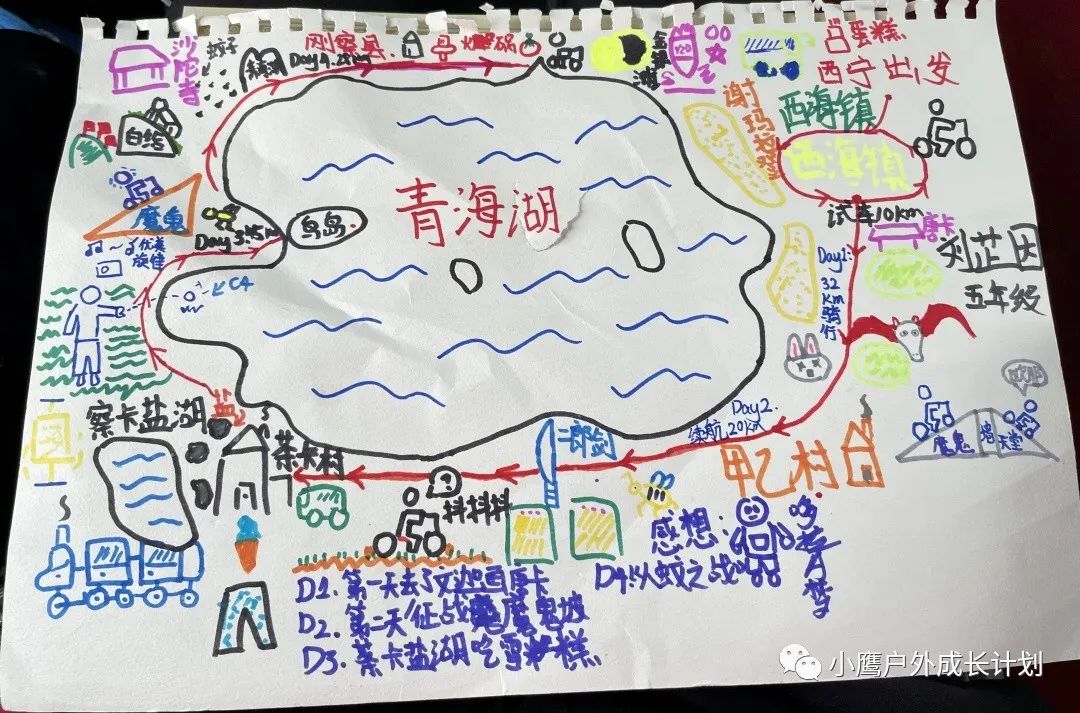 刚察县
火锅
蛋糕
西宁出发
沙陀寺
蚊子
Day4.
西海镇
西海镇
白塔
青海湖
试车10km
唐卡
魔鬼
Day3.
鸟岛
刘芷因
五年级
优美
旋律
Day1:
32
km
骑行
察卡盐湖
盐
Day2.
续航20km
二郎剑
茶卡村
甲乙村
魔鬼
天堂
抖抖抖
感想:
D1.第一天去了文迦画唐卡
D4:人蚊之战
D2.第二天征战魔鬼坡
D3.茶卡盐湖吃雪糕
小鹰户外成长计划